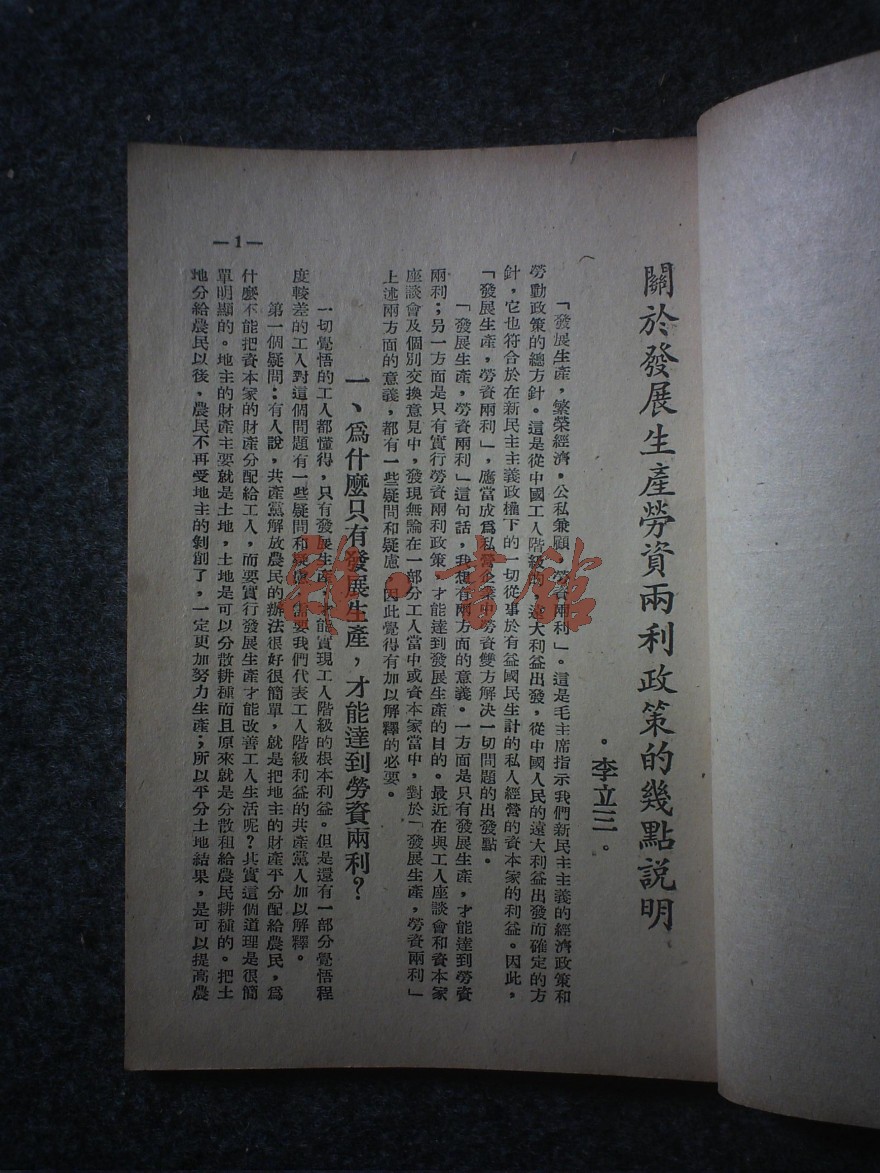 關於發展生產勞資兩利政策的幾點說明
·李立三·
「發展生產，繁榮經濟，公私兼顧，勞資兩利」。這是毛主席指示我們新民主主義的經濟政策和
勞動政策的總方針。這是從中國工人階級的遠大利益出發，從中國人民的遠大利益出發而確定的方
針，它也符合於在新民主主義政權下的一切從事於有益國民生計的私人經營的資本家的利益。因此，
「發展生產，勞資兩利」，應當成爲私營企業中勞資雙方解决一切問題的出發點。
「發展生產，勞資兩利」這句話，我想有兩方面的意義。一方面是只有發展生產，才能達到勞資
兩利；另一方面是只有實行勞資兩利政策，才能達到發展生產的目的。最近在與工人座談會和資本家
座談會及個別交換意見中，發現無論在一部分工人當中或資本家當中，對於「發展生產，勞資兩利」
上述兩方面的意義，都有一些疑問和疑慮，因此覺得有加以解釋的必要。
一、爲什麼只有發展生產，才能達到勞資兩利？
一切覺悟的工人都懂得，只有發展生產，才能實現工人階級的根本利益。但是還有一部分覺悟程
度較差的工人對這個問題有一些疑問和疑慮，需要我們代表工人階級利益的共產黨人加以解釋。
第一個疑問：有人說，共產黨解放農民的辦法很好很簡單，就是把地主的財產平分配給農民，爲
什麼不能把資本家的財產分配給工人，而要實行發展生產才能改善工人生活呢？其實這個道理是很簡
單明顯的。地主的財產主要就是土地，土地是可以分散耕種而且原來就是分散租給農民耕種的。把土
地分給農民以後，農民不再受地主的剝削了，一定更加努力生產；所以平分土地結果，是可以提高農
—1—
雜·書館